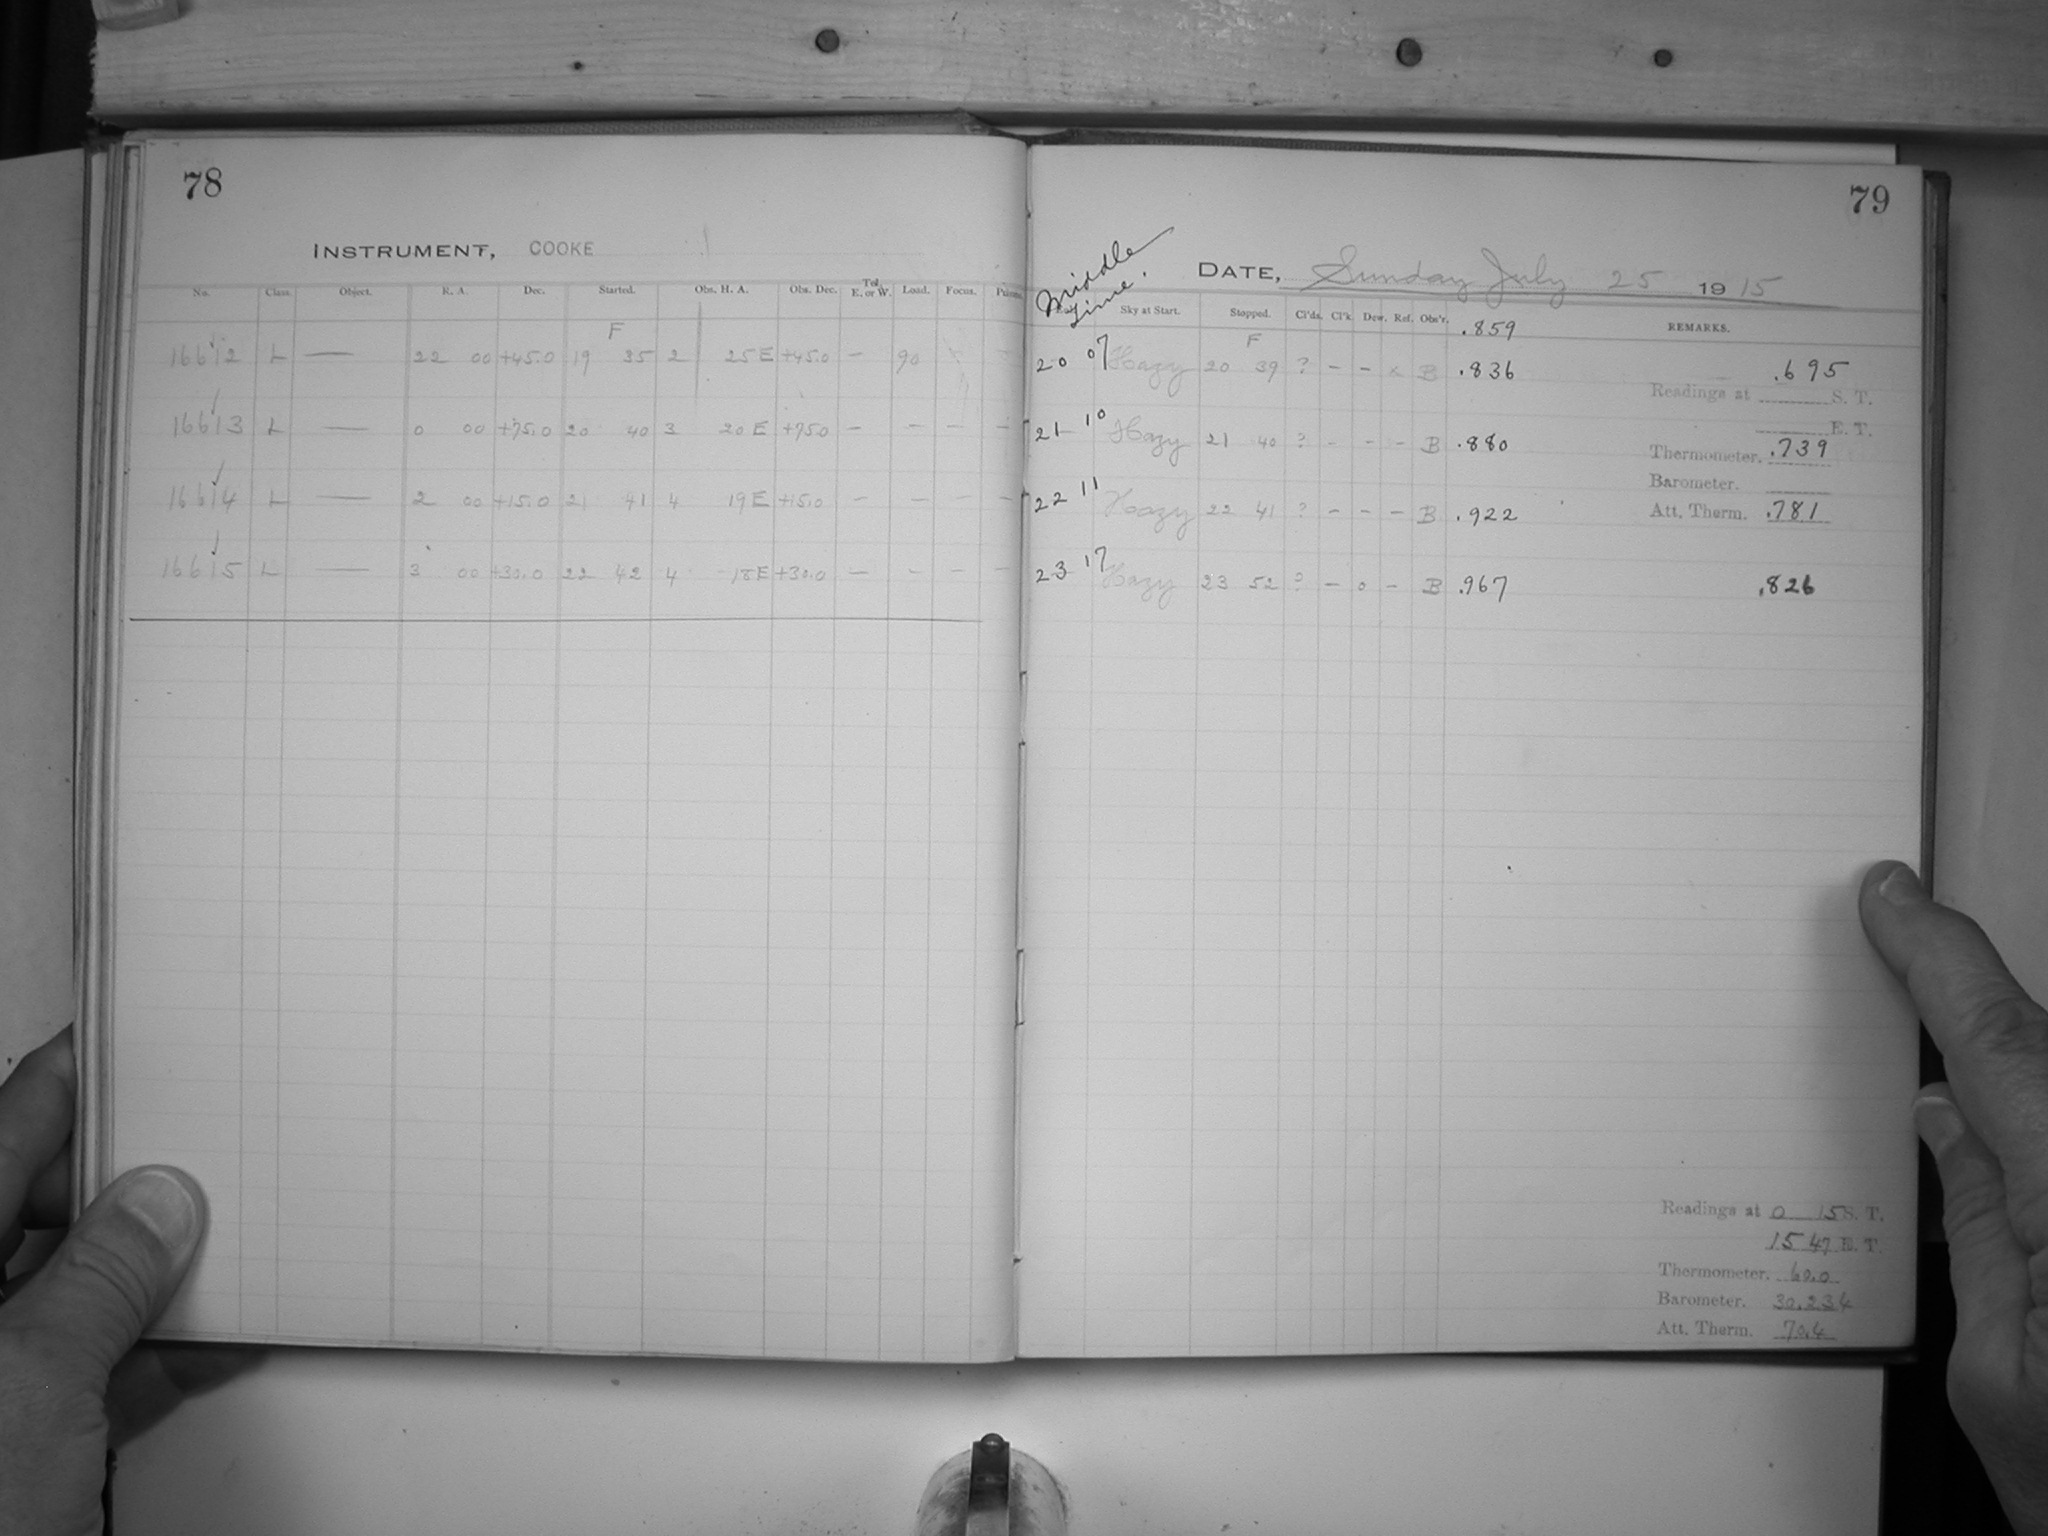 78
INSTRUMENT, COOKE
No. Class. Object. R. A. Dec. Started. Obs. H. A. Obs. Dec. Tel. E. or W. Load. Focus.
F
16612 L — 22 00 +45.0 19 35 2 25 E +45.0 – 90
16613 L — 0 00 +75.0 20 40 3 20 E +75.0 – – – –
16614 L — 2 00 +15.0 21 41 4 19 E +15.0 – – – –
16615 L — 3 00 +30.0 22 42 4 18 E +30.0 – – – –
79
DATE, Sunday July 25 1915
Middle Time.
Sky at Start. Stopped. Cl'ds. Cl'k. Dew. Ref. Obs'r. .859 REMARKS.
F
20 07 Hazy 20 39 ? – – × B .836 .695
Readings at S. T.
E. T.
21 10 Hazy 21 40 ? – – – B .880
Thermometer. .739
Barometer.
22 11 Hazy 22 41 ? – – – B .922
Att. Therm. .781
23 17 Hazy 23 52 ? – 0 – B .967 .826
Readings at 0 15 S. T.
15 47 E. T.
Thermometer. 60.0
Barometer. 30.234
Att. Therm. 70.4